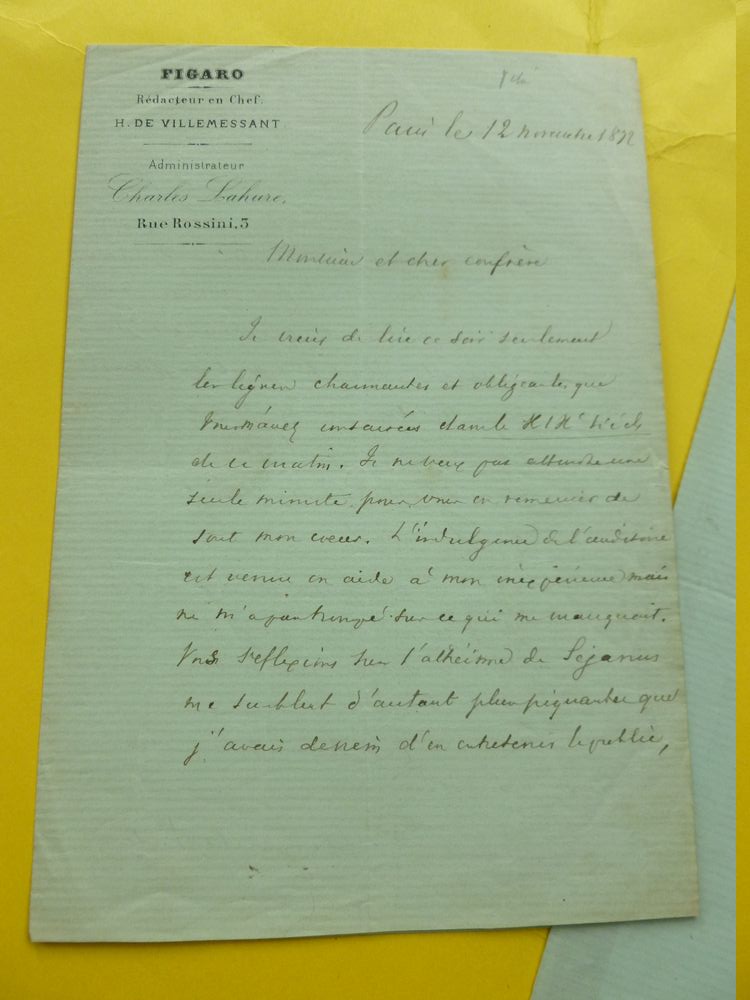 FIGARO
Rédacteur en Chef.
H. DE VILLEMESSANT
Administrateur
Charles Lahure,
Rue Rossini, 3
Paris le 12 novembre 1872
Monsieur et cher confrère
Je viens de lire ce soir seulement
les lignes charmantes et obligeantes que
vous m'avez consacrées dans le XIXe Siècle
de ce matin. Je ne veux pas attendre une
seule minute pour vous en remercier de
tout mon coeur. L'indulgence de l'auditoire
est venue en aide à mon inexpérience mais
ne m'a pas trompé sur ce qui me manquait.
Vos réflexions sur l'athéisme de Séjanus
me semblent d'autant plus piquantes que
j'avais dessein d'en entretenir le public,